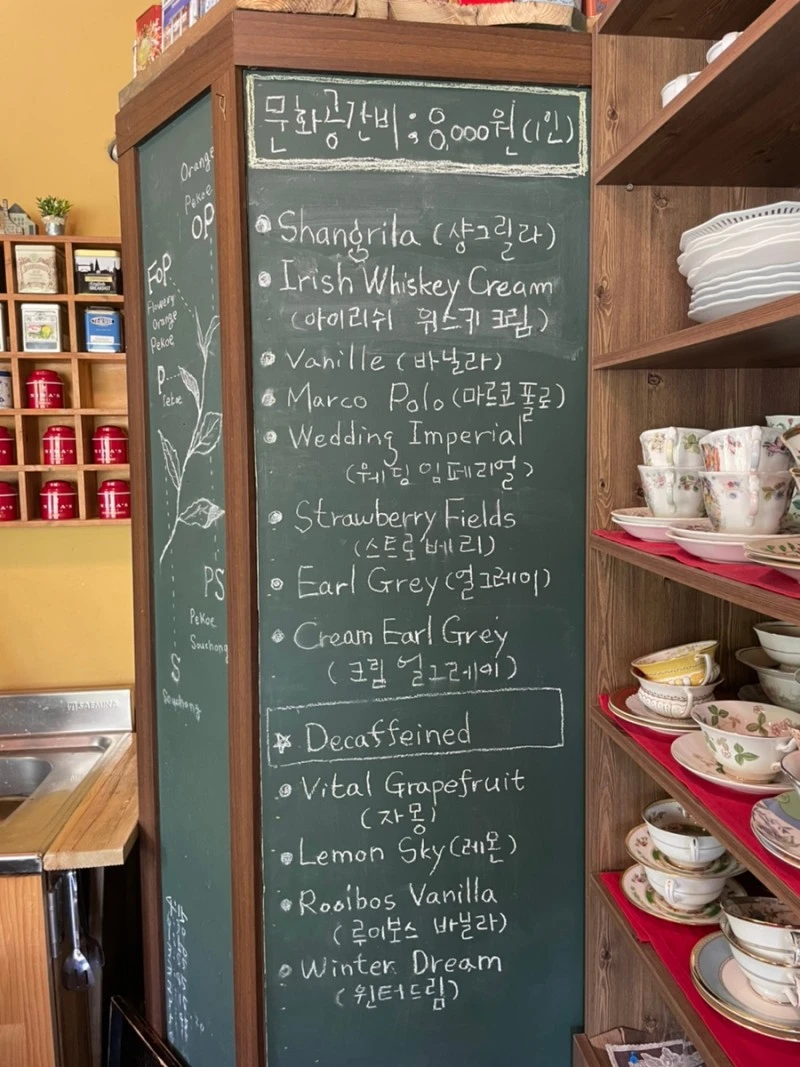 문화공간비 : 8,000원(1인)
Shangrila (샹그릴라)
Irish Whiskey Cream
(아이리쉬 위스키 크림)
Vanille (바닐라)
Marco Polo (마르코폴로)
Wedding Imperial
(웨딩임페리얼)
Strawberry Fields
(스트로베리)
Earl Grey (얼그레이)
Cream Earl Grey
(크림 얼그레이)
☆ Decaffeined
Vital Grapefruit
(자몽)
Lemon Sky (레몬)
Rooibos Vanilla
(루이보스 바닐라)
Winter Dream
(윈터드림)
Orange
Pekoe
OP
FOP
Flowery
Orange
Pekoe
P
Pekoe
PS
Pekoe
Souchong
S
Souchong